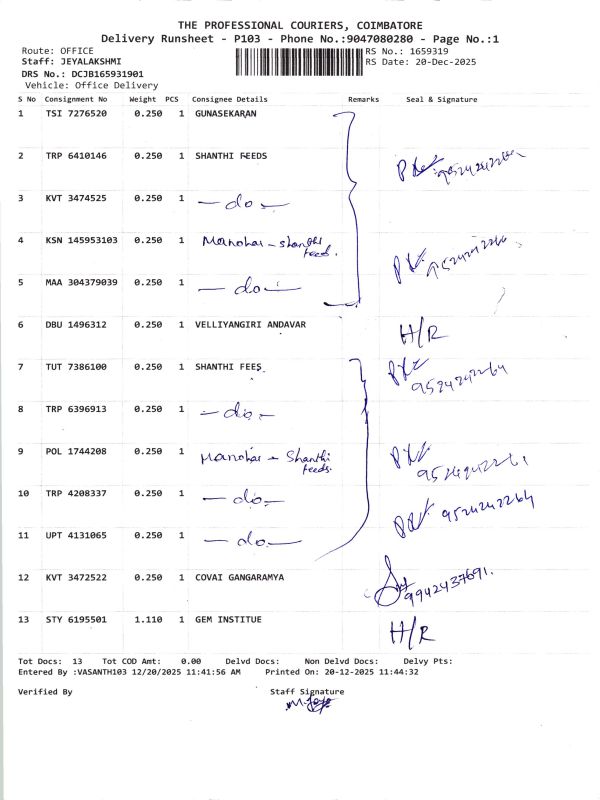 THE PROFESSIONAL COURIERS, COIMBATORE
Delivery Runsheet - P103 - Phone No.:9047080280 - Page No.:1
Route: OFFICE RS No.: 1659319
Staff: JEYALAKSHMI RS Date: 20-Dec-2025
DRS No.: DCJB165931901
Vehicle: Office Delivery
S No Consignment No Weight PCS Consignee Details Remarks Seal & Signature
1 TSI 7276520 0.250 1 GUNASEKARAN
2 TRP 6410146 0.250 1 SHANTHI FEEDS
3 KVT 3474525 0.250 1 — do —
4 KSN 145953103 0.250 1 Manohar - Shanthi feed.
5 MAA 304379039 0.250 1 — do —
6 DBU 1496312 0.250 1 VELLIYANGIRI ANDAVAR H/R
7 TUT 7386100 0.250 1 SHANTHI FEES 9524242264
8 TRP 6396913 0.250 1 — do —
9 POL 1744208 0.250 1 Manohar - Shanthi feeds.
10 TRP 4208337 0.250 1 — do — 9524242264
11 UPT 4131065 0.250 1 — do —
12 KVT 3472522 0.250 1 COVAI GANGARAMYA 9942437691.
13 STY 6195501 1.110 1 GEM INSTITUE H/R
Tot Docs: 13 Tot COD Amt: 0.00 Delvd Docs: Non Delvd Docs: Delvy Pts:
Entered By :VASANTH103 12/20/2025 11:41:56 AM Printed On: 20-12-2025 11:44:32
Verified By Staff Signature